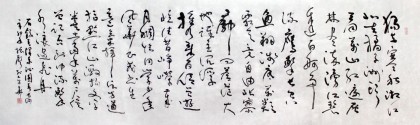 独立寒秋湘江
北去橘子洲头
看万山红遍层
林尽染漫江碧
透百舸争流
鹰击长空
鱼翔浅底万类
霜天竞自由怅寥
廓问苍茫大
地谁主沉浮
携来百侣曾游
忆往昔峥嵘岁
月稠恰同学少年
风华正茂书生
意气挥斥方遒
指点江山激扬文字
粪土当年万户侯
曾记否到中流击
水浪遏飞舟